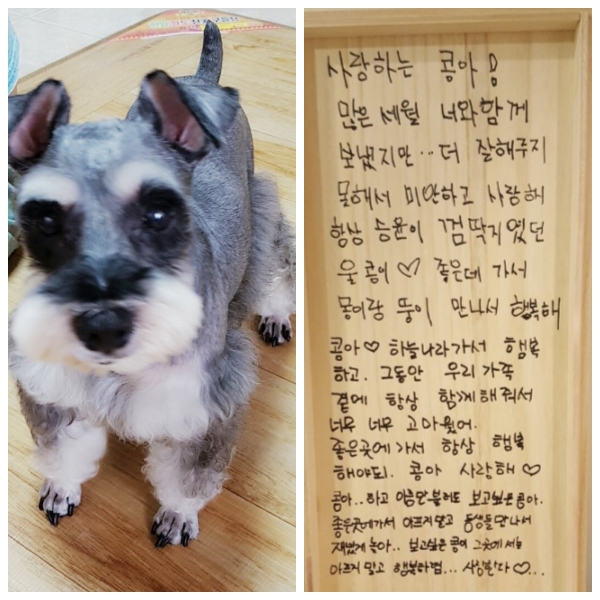 사랑하는 콩아!
많은 세월 너와함께
보냈지만.. 더 잘해주지
못해서 미안하고 사랑해
항상 승윤이 껌딱지였던
울 콩이♡ 좋은데 가서
몽이랑 뚱이 만나서 행복해
콩아♡ 하늘나라가서 행복
하고. 그동안 우리가족
곁에 항상 함께해줘서
너무 너무 고마웠어.
좋은곳에가서 항상 행복
해야되. 콩아 사랑해♡
콩아..하고 이름만불러도 보고싶은콩아.
좋은곳에가서 아프지말고 동생들만나서
재밌게 놀아.. 보고싶은 콩이 그곳에서는
아프지 말고 행복하렴... 사랑한다♡...